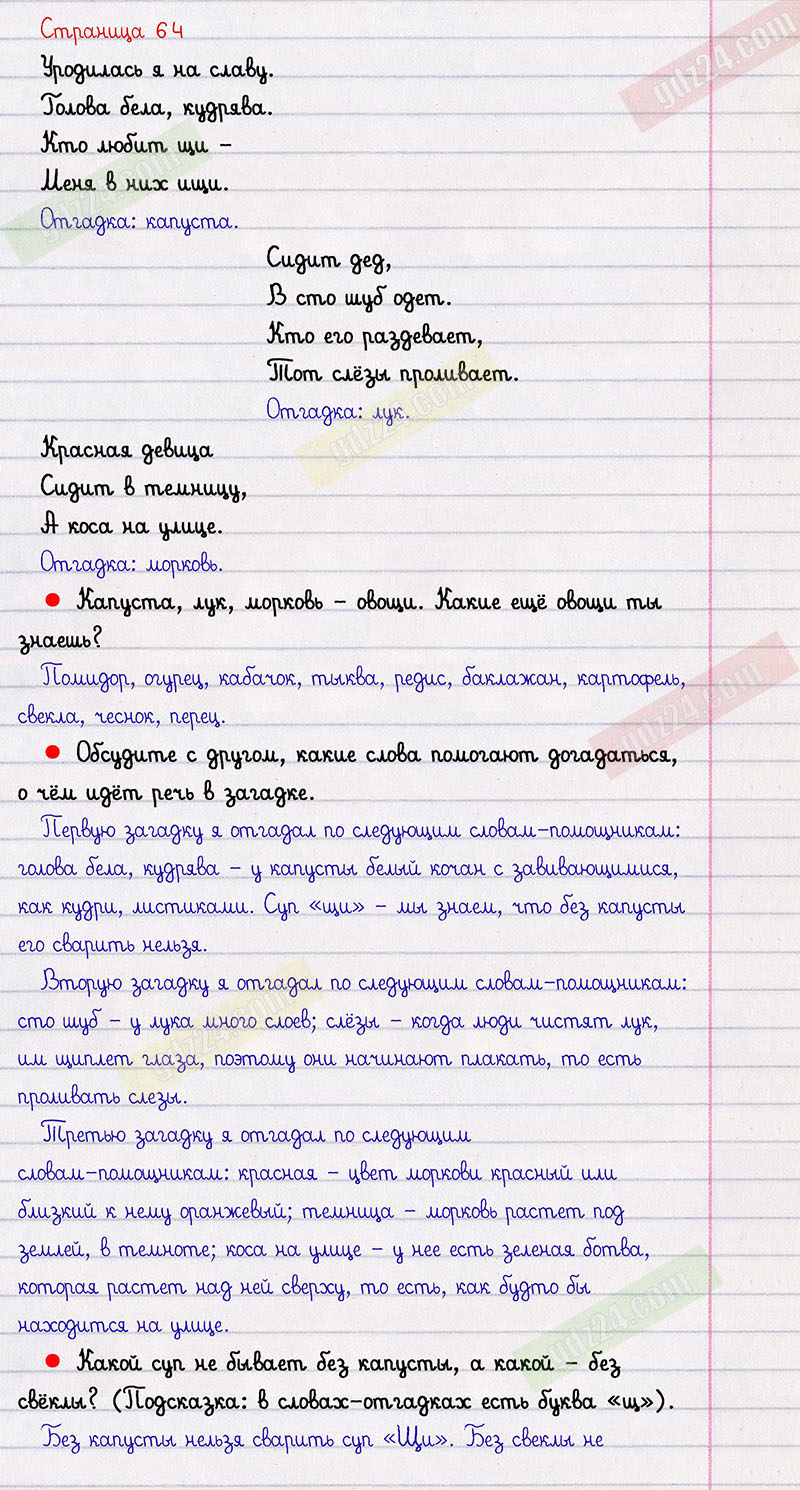 Страница 64
Уродилась я на славу.
Голова бела, кудрява.
Кто любит щи –
Меня в них ищи.
Отгадка: капуста.
Сидит дед,
В сто шуб одет.
Кто его раздевает,
Тот слёзы проливает.
Отгадка: лук.
Красная девица
Сидит в темницу,
А коса на улице.
Отгадка: морковь.
• Капуста, лук, морковь – овощи. Какие ещё овощи ты
знаешь?
Помидор, огурец, кабачок, тыква, редис, баклажан, картофель,
свекла, чеснок, перец.
• Обсудите с другом, какие слова помогают догадаться,
о чём идёт речь в загадке.
Первую загадку я отгадал по следующим словам-помощникам:
голова бела, кудрява – у капусты белый кочан с завивающимися,
как кудри, листиками. Суп «щи» – мы знаем, что без капусты
его сварить нельзя.
Вторую загадку я отгадал по следующим словам-помощникам:
сто шуб – у лука много слоев; слёзы – когда люди чистят лук,
им щиплет глаза, поэтому они начинают плакать, то есть
проливать слезы.
Третью загадку я отгадал по следующим
словам-помощникам: красная – цвет моркови красный или
близкий к нему оранжевый; темница – морковь растет под
землей, в темноте; коса на улице – у нее есть зеленая ботва,
которая растет над ней сверху, то есть, как будто бы
находится на улице.
• Какой суп не бывает без капусты, а какой – без
свёклы? (Подсказка: в словах-отгадках есть буква «щ»).
Без капусты нельзя сварить суп «Щи». Без свеклы не
gdz24.com
gdz24.com
gdz24.com
gdz24.com
gdz24.com
gdz24.com